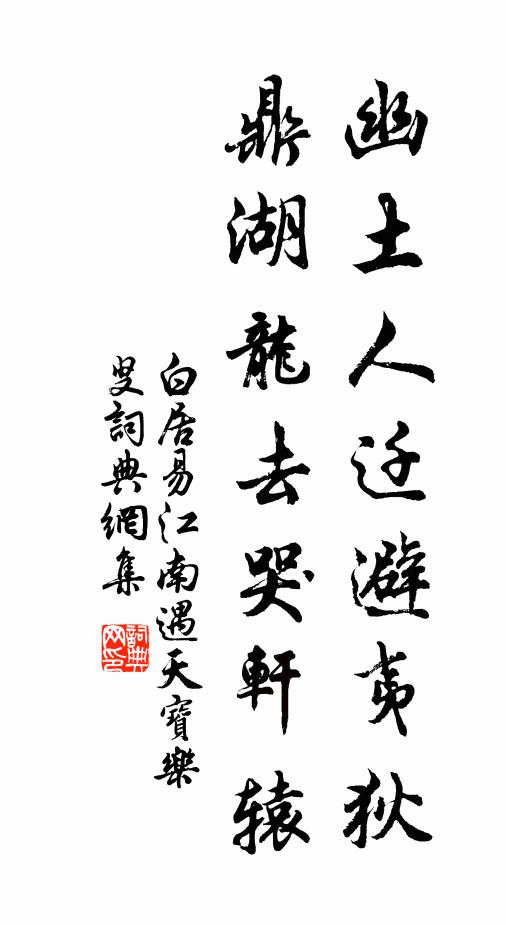 豳土人迁避夷狄
鼎湖龍去哭軒辕
白居易江南遇天寶樂
叟詞典網集
詞典
网印